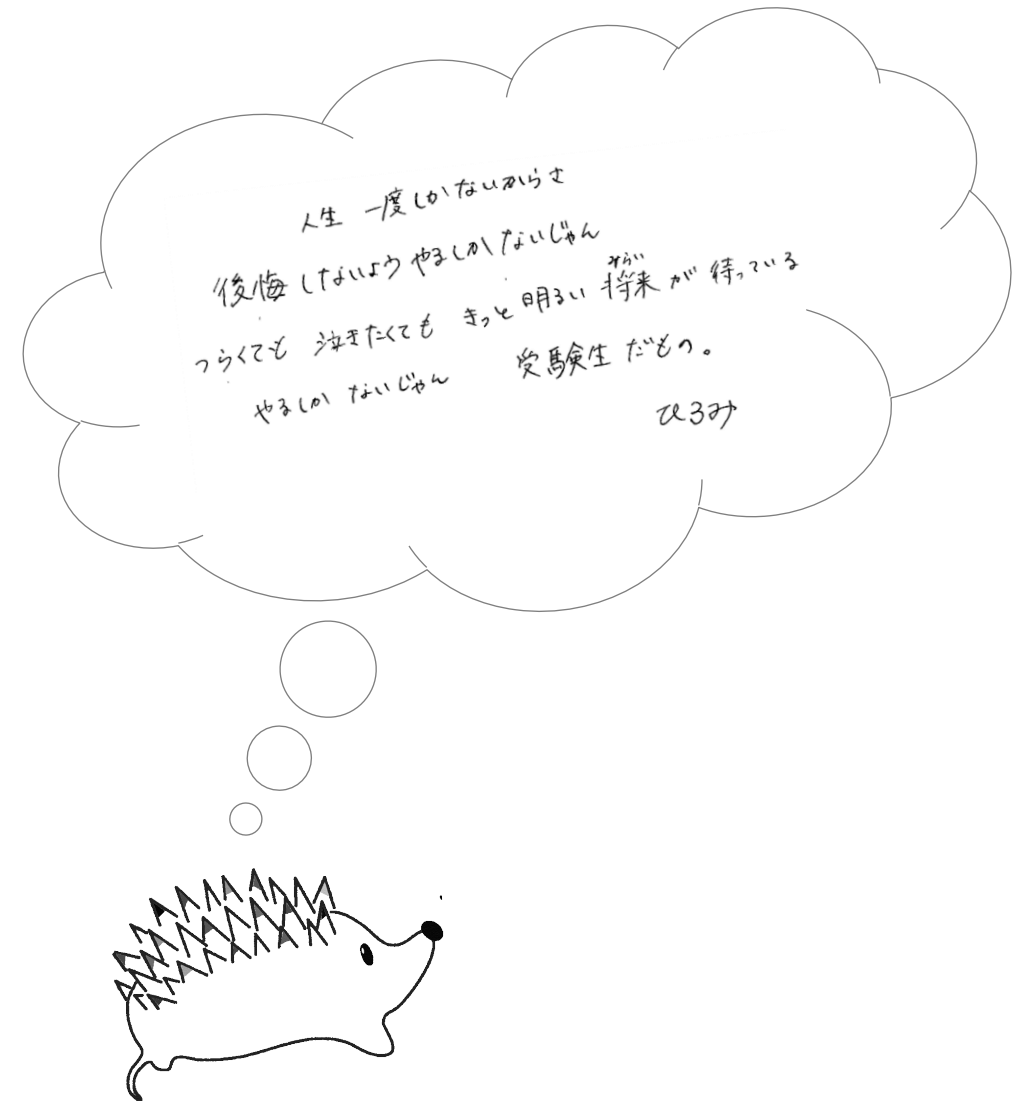 人生 一度しかないからさ
後悔しないよう やるしかないじゃん
つらくても 泣きたくても きっと明るい 将来が 待っている
みらい
やるしか ないじゃん 受験生 だもの。
ひろみ